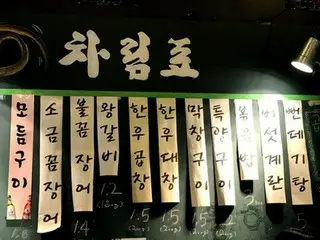 차림표
모듬구이
소금꼼장어
불꼼장어
왕갈비
한우곱창
한우대창
막창구이
특양구이
볶음밥
버섯계란
뻔데기탕
14
1.2
(180g)
1.5
1.5
1.5
2
5